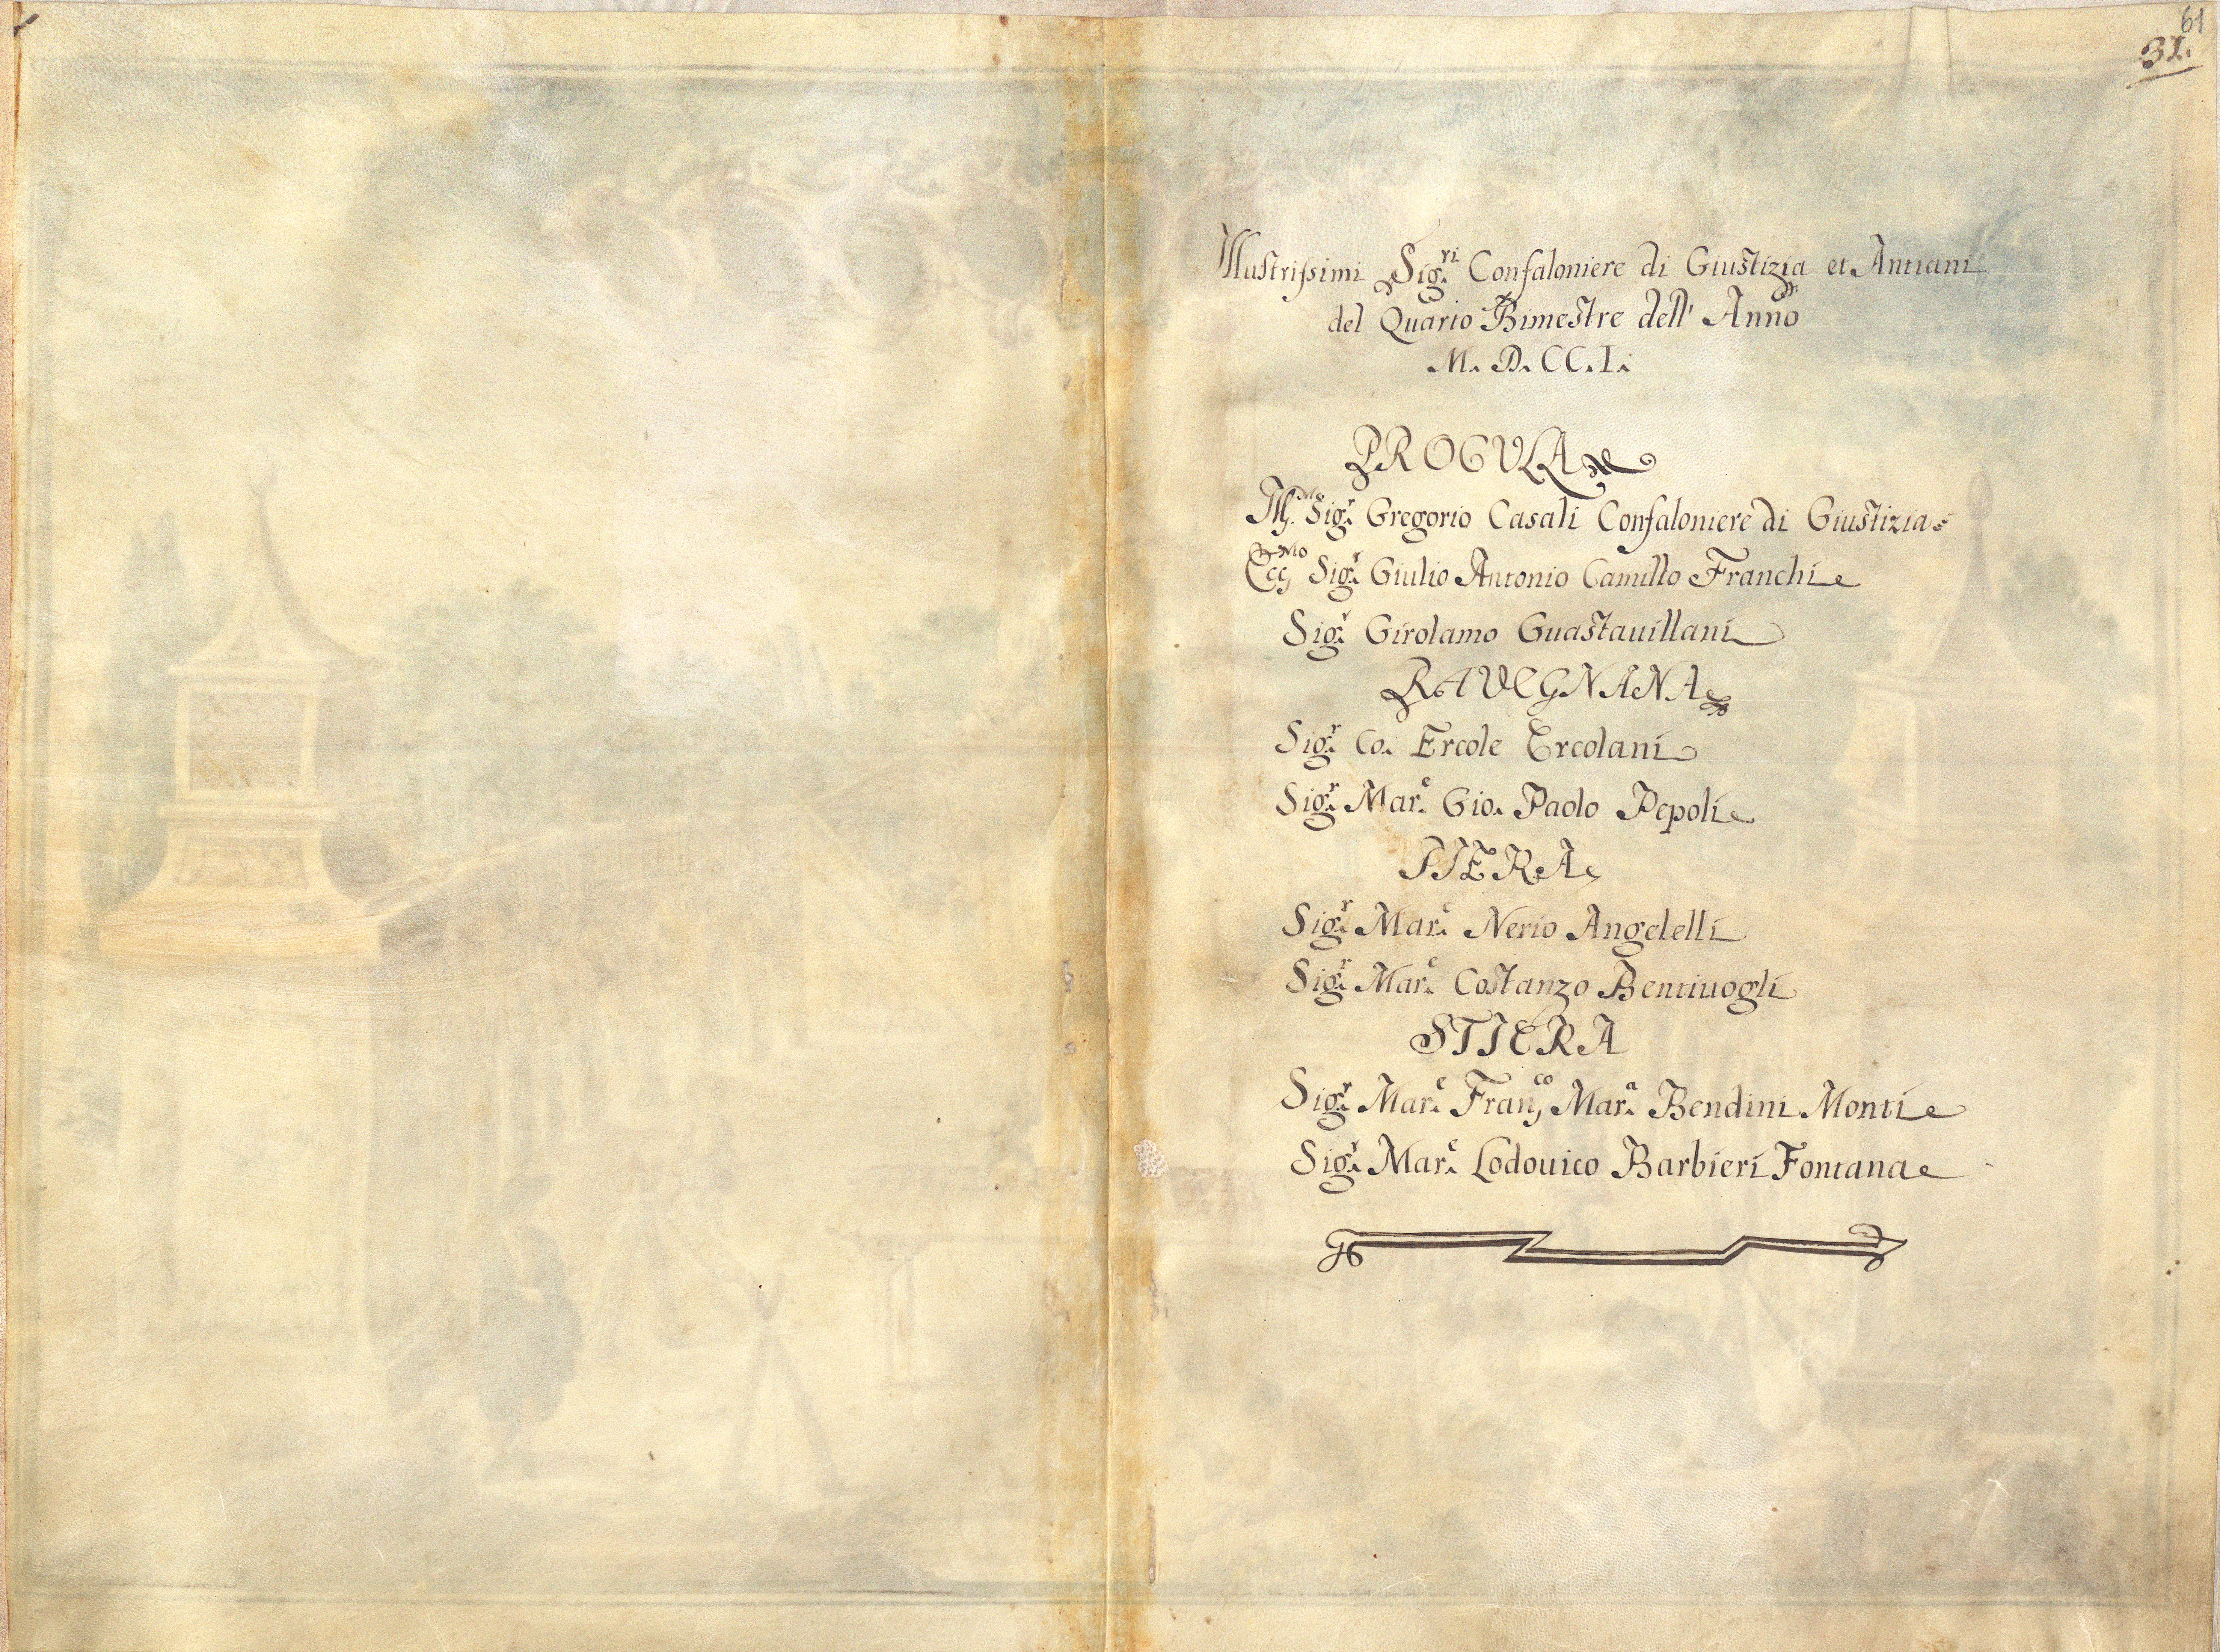 61
31.
Illustrissimi Sig.ri Confaloniere di Giustizia et Antiani
del Quarto Bimestre dell' Anno
M. D. CC. I.
PROCVLA
Ill.mo Sig.r Gregorio Casali Confaloniere di Giustizia
Ecc.mo Sig.r Giulio Antonio Camillo Franchi
Sig.r Girolamo Guastauillani
RAVEGNANA
Sig.r Co. Ercole Ercolani
Sig.r Mar.e Gio. Paolo Pepoli
PIERA
Sig.r Mar.e Nerio Angelelli
Sig.r Mar.e Costanzo Bentiuogli
STIERA
Sig.r Mar.e Fran.co Mar.a Bendini Monti
Sig.r Mar.e Lodouico Barbieri Fontana